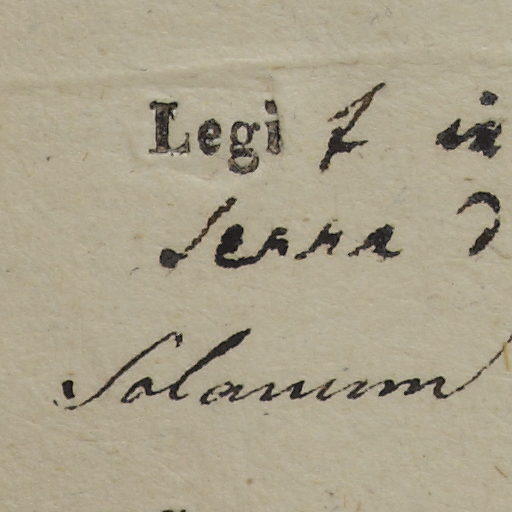 Legit in
Serra d
Solanum